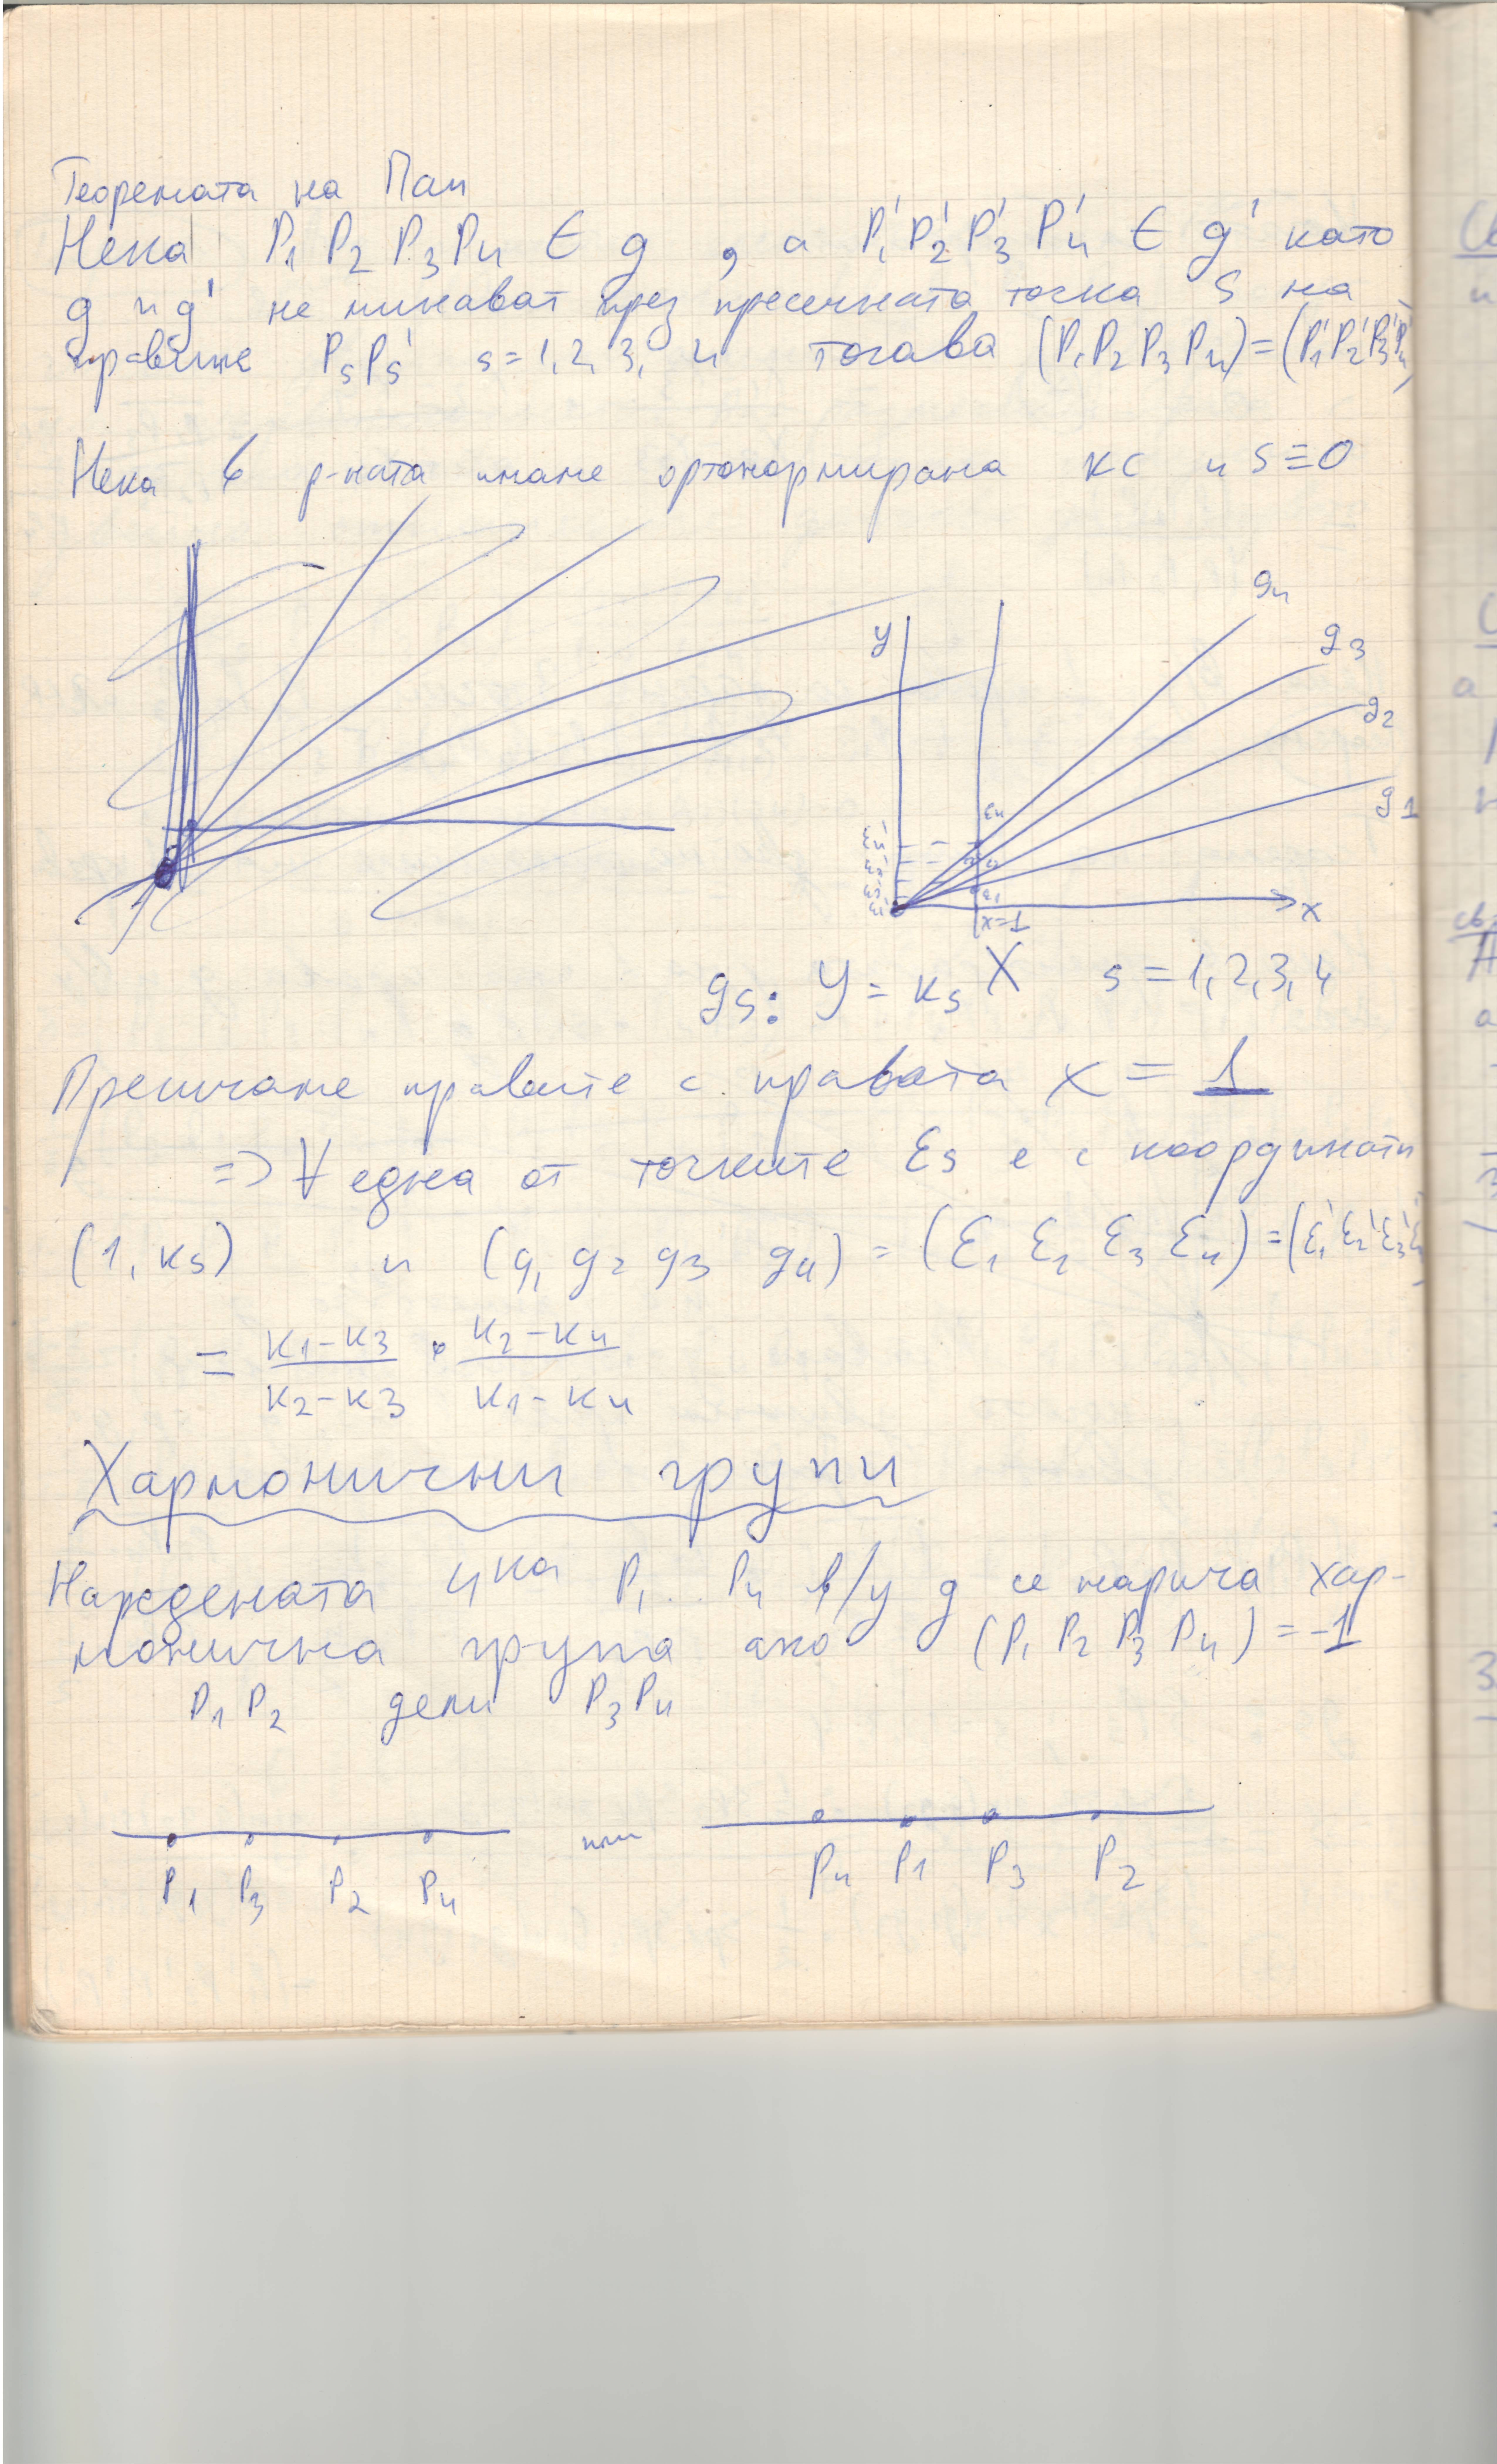 Теоремата на Пап
Нека P₁ P₂ P₃ P₄ ∈ g , а P₁' P₂' P₃' P₄' ∈ g' като
g и g' не минават през пресечната точка S на
правите PₛPₛ' s = 1, 2, 3, 4 тогава (P₁P₂P₃P₄) = (P₁'P₂'P₃'P₄')
Нека в р-ната имаме ортонормирана кс и S ≡ O
y g₄ g₃ g₂ g₁
ε₄
x=1 x
gₛ: y = kₛ x s = 1, 2, 3, 4
Пресичаме правите с правата x = 1
=> ∀ една от точките εₛ е с координати
(1, kₛ) и (g₁ g₂ g₃ g₄) = (ε₁ ε₂ ε₃ ε₄) = (ε₁' ε₂' ε₃' ε₄')
= (k₁-k₃)/(k₂-k₃) · (k₂-k₄)/(k₁-k₄)
Хармонични групи
Наредената 4ка P₁ .. P₄ в/у g се нарича хар-
монична група ако (P₁ P₂ P₃ P₄) = -1
P₁ P₂ дели P₃P₄
или
P₁ P₃ P₂ P₄ P₄ P₁ P₃ P₂